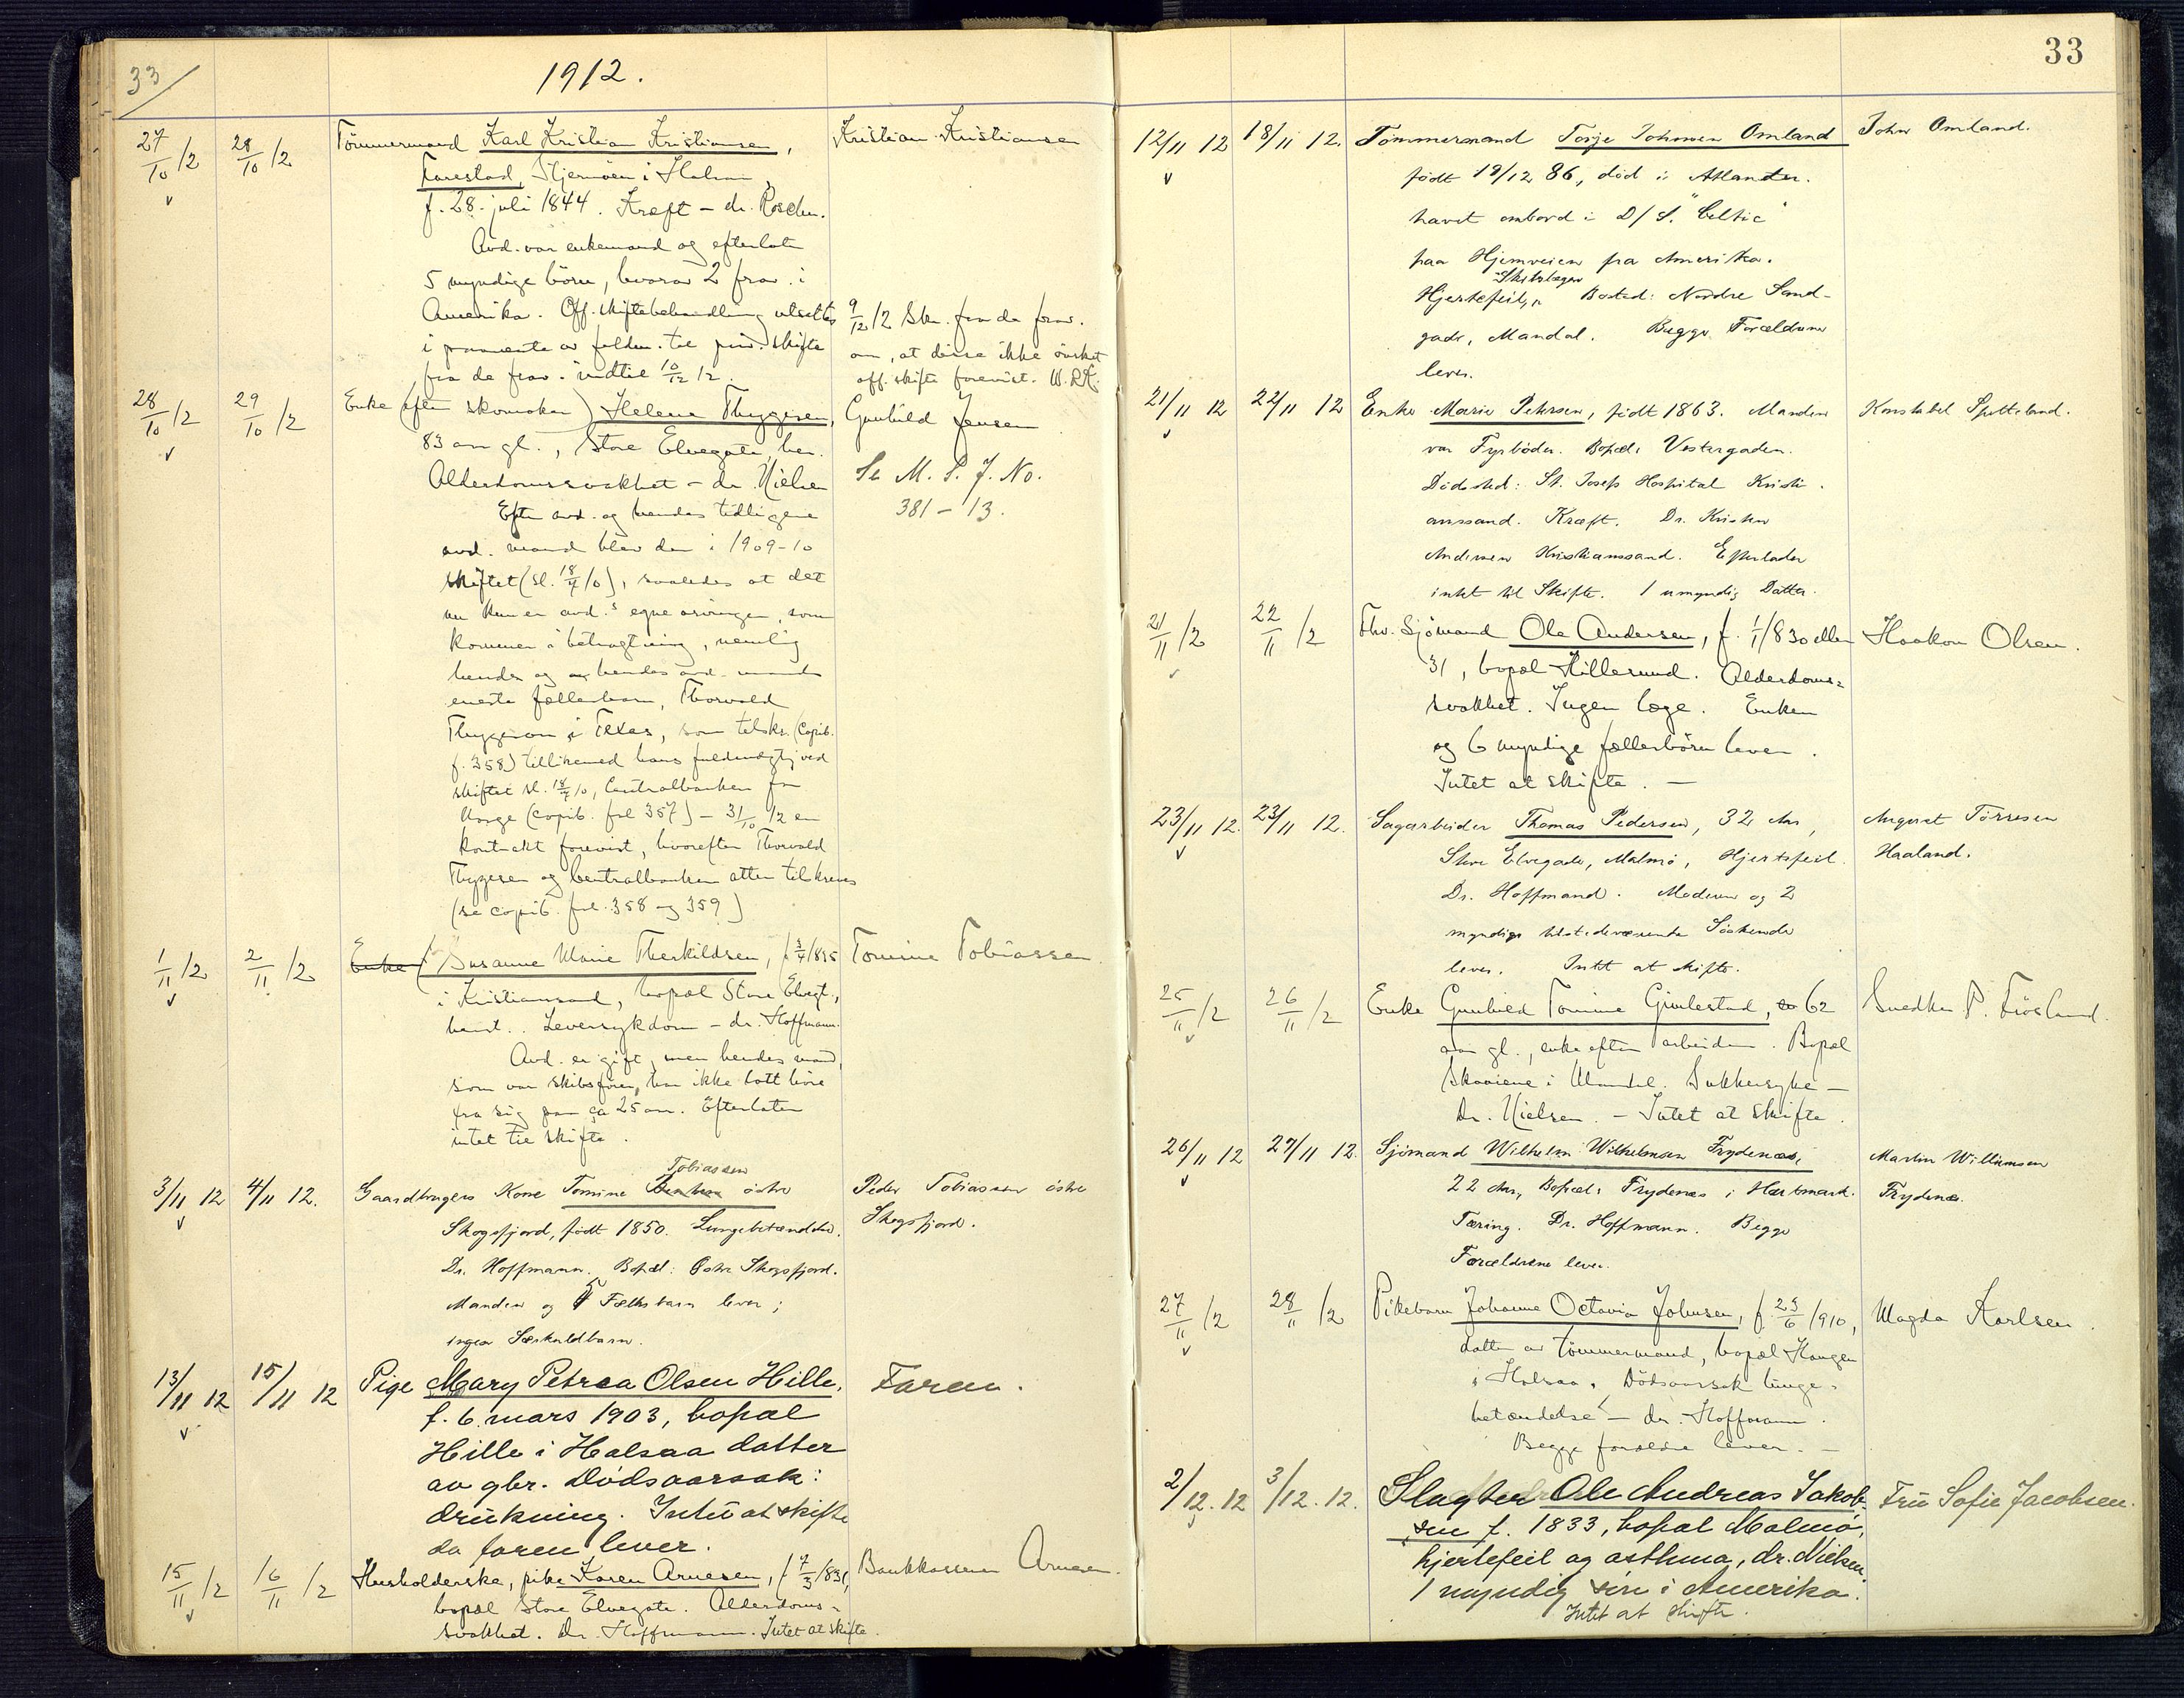 33
1912.
27/10 12 28/10 12 Tömmermand Karl Kristian Kristiansen, Kristian Kristiansen
Farestad, Stjernöen i Halsaa,
f. 28. juli 1844. Kræft - dr. Roscher.
Avd. var enkemand og efterlot
5 myndige börn, hvorav 2 frav. i
Amerika. Off. skiftebehandling utsættes
i paavente av fuldm. til priv. skifte
fra de frav. indtil 10/12 12.
9/12 12 Skr. fra de frav.
om, at disse ikke önsket
off. skifte forevist.
28/10 12 29/10 12 Enke (efter skomaker) Helene Thygesen, Gunhild Jensen
83 aar gl., Store Elvegate, her.
Alderdomssvakhet - dr. Nielsen
Se M. S. J. No.
381 - 13.
Efter avd. og hendes tidligere
avd. mand blev der i 1909-10
skiftet (sl. 18/4 10), saaledes at det
nu kun er avd.s egne arvinger, som
kommer i betragtning, nemlig
hendes og hendes avd. mands
eneste fællesbarn, Thorvald
Thygeson i Texas, som tilskr. (Copib.
f. 358) tillikemed hans fuldmægtig ved
skiftet sl. 18/4 10, Centralbanken for
Norge (copib. fol 357) - 31/10 12 er
kontrakt forevist, hvorefter Thorvald
Thygesen og Centralbanken atter tilskrives
(se copib. fol. 358 og 359)
1/11 12 2/11 12 Enke ( Susanne Marie Therkildsen, f. 3/4 1835 Tomine Tobiassen
i Kristiansand, bopæl Store Elvegt.,
herst. Leversykdom - dr. Hoffmann.
Avd. er gift, men hendes mand,
som var skibsförer, har ikke latt höre
fra sig paa ca 25 aar. Efterlater
intet til skifte.
3/11 12 4/11 12. Gaardbrugers Kone Tomine Tobiassen östre Peder Tobiassen östre
Skogsfjord, födt 1850. Lungebetændelse. Skogsfjord.
Dr. Hoffmann. Bopæl: Östre Skogsfjord.
Manden og Fællesbarn lever;
ingen Særkuldbarn.
13/11 12 15/11 12 Pige Mary Petrea Olsen Hille, Faren.
f. 6. mars 1903, bopæl
Hille i Halsaa datter
av gbr. Dödsaarsak:
drukning. Intet at skifte
da faren lever.
15/11 12 16/11 12 Husholderske, pike Karen Arnesen, f. 7/3 1831, Bankkasserer Arnesen.
bopæl Store Elvegate. Alderdoms-
svakhet. Dr. Hoffmann. Intet at skifte.
33
12/11 12 18/11 12. Tömmermand Torje Johnsen Omland John Omland.
födt 19/12 86, död i Atlander-
havet ombord i D/S. "Celtic"
paa Hjemveien fra Amerika.
Skibslægen
Hjertefeil, Bosted: Nordre Sand-
gade, Mandal. Begge Forældrene
lever.
21/11 12 22/11 12 Enke Marie Petersen, födt 1863. Manden Konstabel Spetteland.
var Fyrböder. Bopæl: Vestergaden.
Dödssted: St. Josefs Hospital Kristi-
anssand. Kræft. Dr. Kristen
Andersen Kristianssand. Efterlader
intet til Skifte. 1 umyndig Datter.
21/11 12 22/11 12 Fhv. Sjömand Ole Andersen, f. 1/1 1830 eller Haakon Olsen.
31, bopæl Hillesund. Alderdoms-
svakhet. Ingen læge. Enken
og 6 myndige fællesbörn lever.
Intet at skifte. -
23/11 12. 23/11 12. Sagarbeider Thomas Pedersen, 32 Aar, August Törresen
Store Elvegade, Malmö, Hjertefeil. Haaland.
Dr. Hoffmand. Moderen og 2
myndige tilstedeværende Söskende
lever. Intet at skifte.
25/11 12 26/11 12 Enke Gunhild Tomine Gimlestad, 62 Snedker P. Frösland.
aar gl., enke efter arbeider. Bopæl
Skoviene i Mandal. Sukkersyke -
Dr. Nielsen. - Intet at skifte.
26/11 12 27/11 12. Sjömand Wilhelm Wilhelmsen Frydenæs, Martin Willumsen
22 Aar, Bopæl: Frydenæs i Hartmark. Frydenæs.
Tæring. Dr. Hoffmann. Begge
Forældrene lever.
27/11 12 28/11 12 Pikebarn Johanne Octavia Johnsen, f. 23/6 1910, Magda Karlsen.
datter av tömmermand, bopæl Haugen
i Halsaa. Dödsaarsak lunge-
betændelse - dr. Hoffmann.
Begge forældre lever. -
2/12. 12 3/12. 12. Slagter Ole Andreas Jakob- Fru Sofie Jacobsen.
sen f. 1833, bopæl Malmö,
hjertefeil og asthma, dr. Nielsen.
1 myndig sön i Amerika.
Intet at skifte.